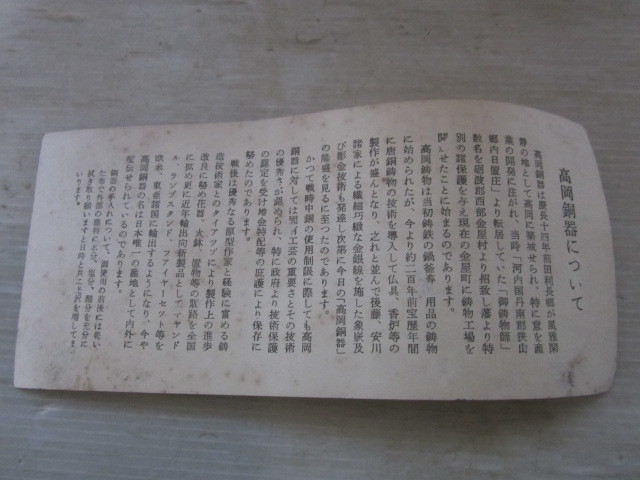 高岡銅器について
高岡銅器は慶長十四年前田利長卿が風雅閑
静の地として高岡に築城せられ、特に意を産
業の開発に注がれ、当時「河内国丹南郡狭山
郷内日置庄」より転居していた「御鋳物師」
数名を砺波郡西部金屋村より招致し藩より特
別の諸保護を与え現在の金屋町に鋳物工場を
開かせたことに始まるのであります。
高岡鋳物は当初鋳鉄の鍋釜等 用品の鋳物
に始められたが、今より約二百年前宝暦年間
に唐銅鋳物の技術を導入して仏具、香炉等の
製作が盛んとなり、之れと並んで後藤、安川
諸家による繊細巧緻な金銀線を施した象嵌及
び彫金技術も発達し次第に今日の「高岡銅器」
の隆盛を見るに至つたのであります
かつて戦時中銅の使用制限に際しても高岡
銅器に対しては 工芸の重要さとその技術
の優秀さが認められ、特に政府より技術保護
の認定を受け地金特配等の庇護により保存に
努めたのであります。
戦後は優秀なる原型作家と経験に富める鋳
造技術家とのタイアツプにより製作上の進歩
改良に努め花器、火鉢、置物等の販路を全国
に拡め更に近年輸出向新製品として サンド
ル、ランプスタンド フアイヤーセツト等を
欧米、東亜諸国に輸出するようになり、今や
高岡銅器の名は日本唯一の産地として内外に
宣伝せられているのであります。
銅器の手入れについて、御使用の前後には乾い
た布で外部の 特に水分、塩分、酸分を充分に
拭き取り願いますと日時と共に光沢を増してま
いります。